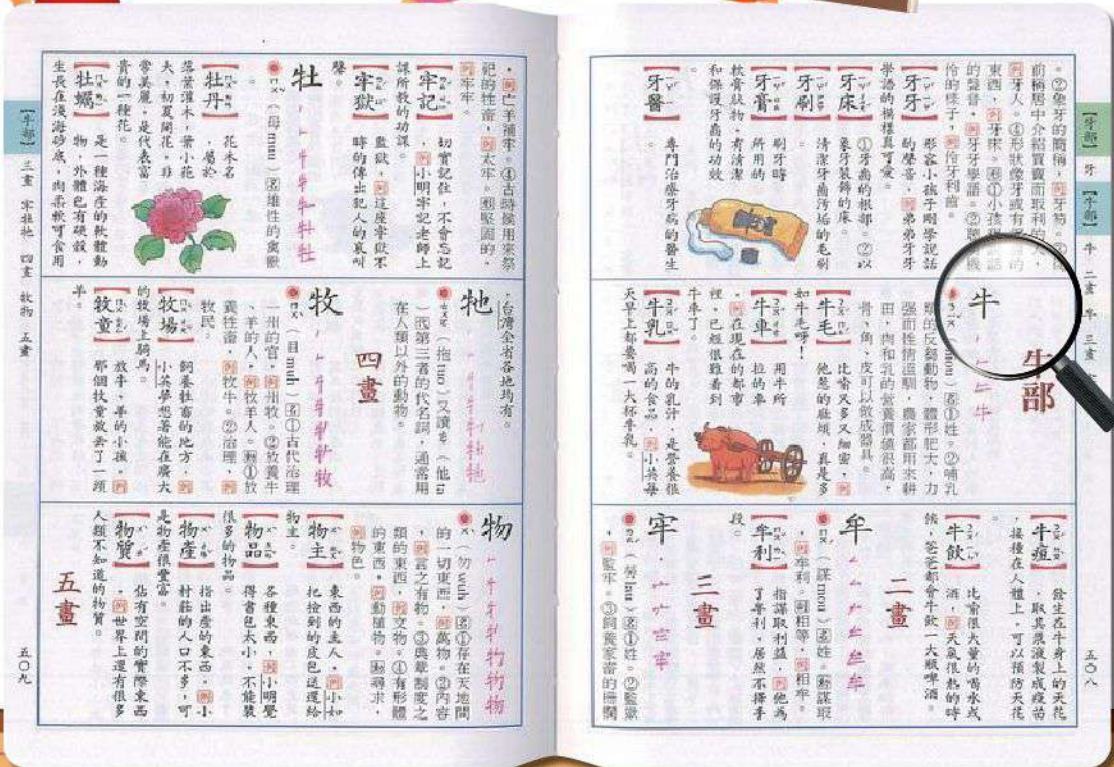 【牙部】牙【牛部】牛 二畫 牟 三畫
五〇八
。②象牙的簡稱,例牙筍。③從
前稱居中介紹買賣而取利的人,
例牙人。④形狀像牙或有
東西,例牙床。
的聲音,例牙牙學語。
伶的樣子,例伶牙利齒。
【牙牙】形容小孩子剛學說話
的聲音,例弟弟牙牙
學語的模樣真可愛。
【牙床】①牙齒的根部。②以
象牙裝飾的床。
【牙刷】清潔牙齒污垢的毛刷
【牙膏】刷牙時所用的
軟膏狀物,有清潔
和保護牙齒的功效
【牙醫】專門治療牙病的醫生
牛部
牛
名①姓。②哺乳
類的反芻動物,體形肥大,力
強而性情溫馴,農家都用來耕
田,肉和乳的營養價值很高,
骨、角、皮可以做成器具。
【牛毛】比喻又多又細密,例
他惹的麻煩,真是多
如牛毛呀!
【牛車】用牛所拉的車
,例在現在的都市
裡,已經很難看到
牛車了。
【牛乳】牛的乳汁,是營養很
高的食品,例小英每
天早上都要喝一大杯牛乳。
【牛痘】發生在牛身上的天花
,取其漿液製成疫苗
,接種在人體上,可以預防天花
【牛飲】比喻很大量的喝水或
酒,例天氣很熱的時
候,爸爸都會牛飲一大瓶啤酒。
二畫
牟
(謀 mou)名姓。動謀取
,例牟利。副相等,例相牟。
【牟利】指謀取利益,例他為
了牟利,居然不擇手
段。
三畫
牢
(勞 lau)名①姓。②監獄
,例監牢。③飼養家畜的柵欄
【牛部】三畫 牢牡牠 四畫 牧物 五畫
五〇九
,例亡羊補牢。④古時候用來祭
祀的牲畜,例太牢。副堅固的,
例牢牢。
【牢記】切實記住,不會忘記
,例小明牢記老師上
課所教的功課。
【牢獄】監獄,例這座牢獄不
時的傳出犯人的哀叫
聲。
牡
(母 muu)名雄性的禽獸
。
【牡丹】花木名,屬於
落葉灌木,葉小花
大,初夏開花,非
常美麗,是代表富
貴的一種花。
【牡蠣】是一種海產的軟體動
物,外體包有硬殼,
生長在淺海砂底,肉柔軟可食用
,台灣全省各地均有。
牠
(拖 tuo)又讀 (他 ta
)代第三者的代名詞,通常用
在人類以外的動物。
四畫
牧
(目 muh)名①古代治理
一州的官,例州牧。②放養牛
、羊的人,例牧羊人。動①放
養牲畜,例牧牛。②治理,例
牧民。
【牧場】飼養牲畜的地方,例
小英夢想著能在廣大
的牧場上騎馬。
【牧童】放牛、羊的小孩,例
那個牧童放丟了一頭
羊。
物
(勿 wuh)名①存在天地間
的一切東西,例萬物。②內容
,例言之有物。③典章制度之
類的東西,例文物。④有形體
的東西,例動植物。動尋求,
例物色。
【物主】東西的主人,例小如
把撿到的皮包送還給
物主。
【物品】各種東西,例小明覺
得書包太小,不能裝
很多的物品。
【物產】指出產的東西,例小
村莊的人口不多,可
是物產很豐富。
【物質】佔有空間的實際東西
,例世界上還有很多
人類不知道的物質。
五畫